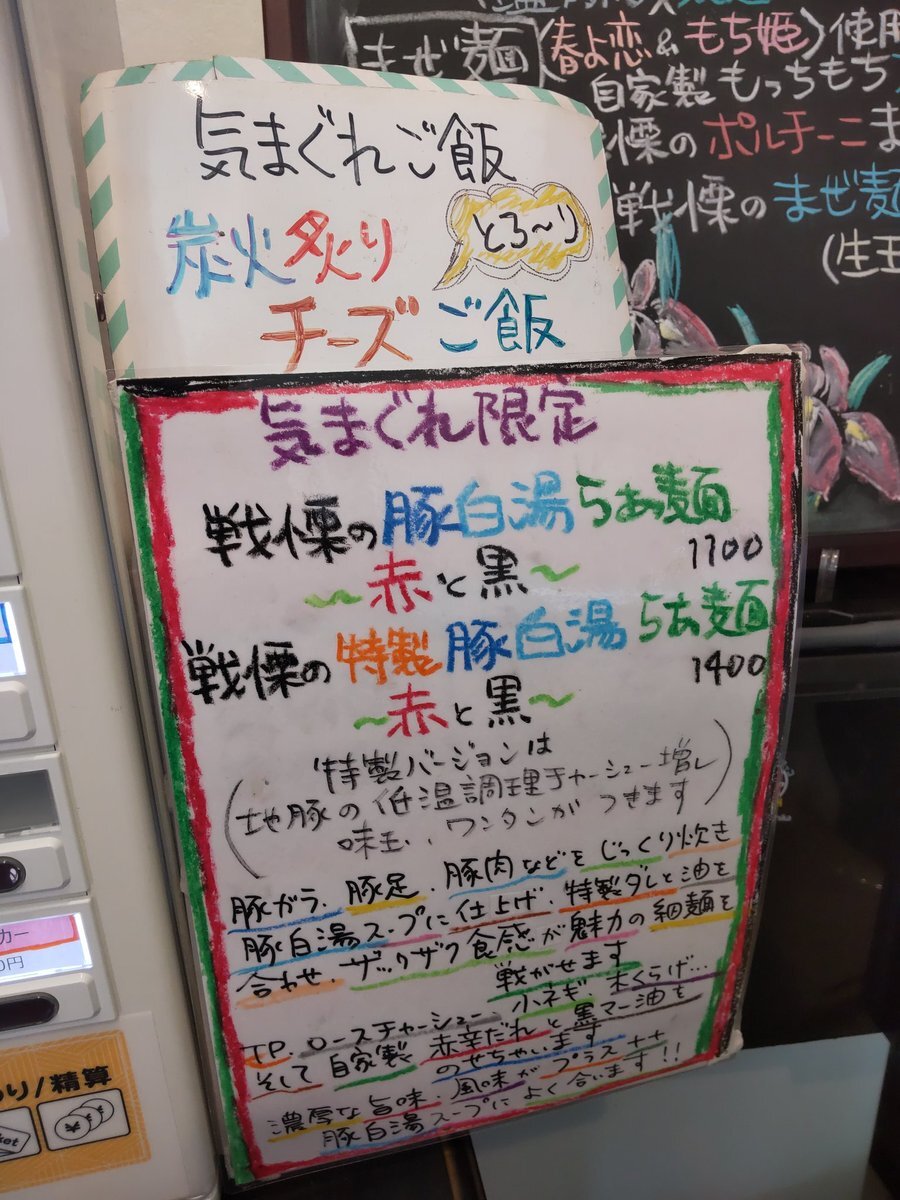 まぜ麺(春よ恋&もち姫)使用
自家製もっちもち
戦慄のポルチーニま
戦慄のまぜ麺
(生玉
気まぐれご飯
炭火炙り
とろ〜り
チーズご飯
気まぐれ限定
戦慄の豚白湯らぁ麺
1100
〜赤と黒〜
戦慄の特製豚白湯らぁ麺
1400
〜赤と黒〜
(特製バージョンは
地豚の低温調理チャーシュー増し
味玉、ワンタンがつきます)
豚ガラ、豚足、豚肉などをじっくり炊き
豚白湯スープに仕上げ、特製ダレと油を
合わせ、ザックザク食感が魅力の細麺を
戦がせます
TP、ロースチャーシュー、小ネギ、木くらげ…
そして自家製赤辛だれと黒マー油を
のせちゃいます
濃厚な旨味、風味がプラス++
豚白湯スープによく合います!!
カー
0円
り/精算
ket
¥